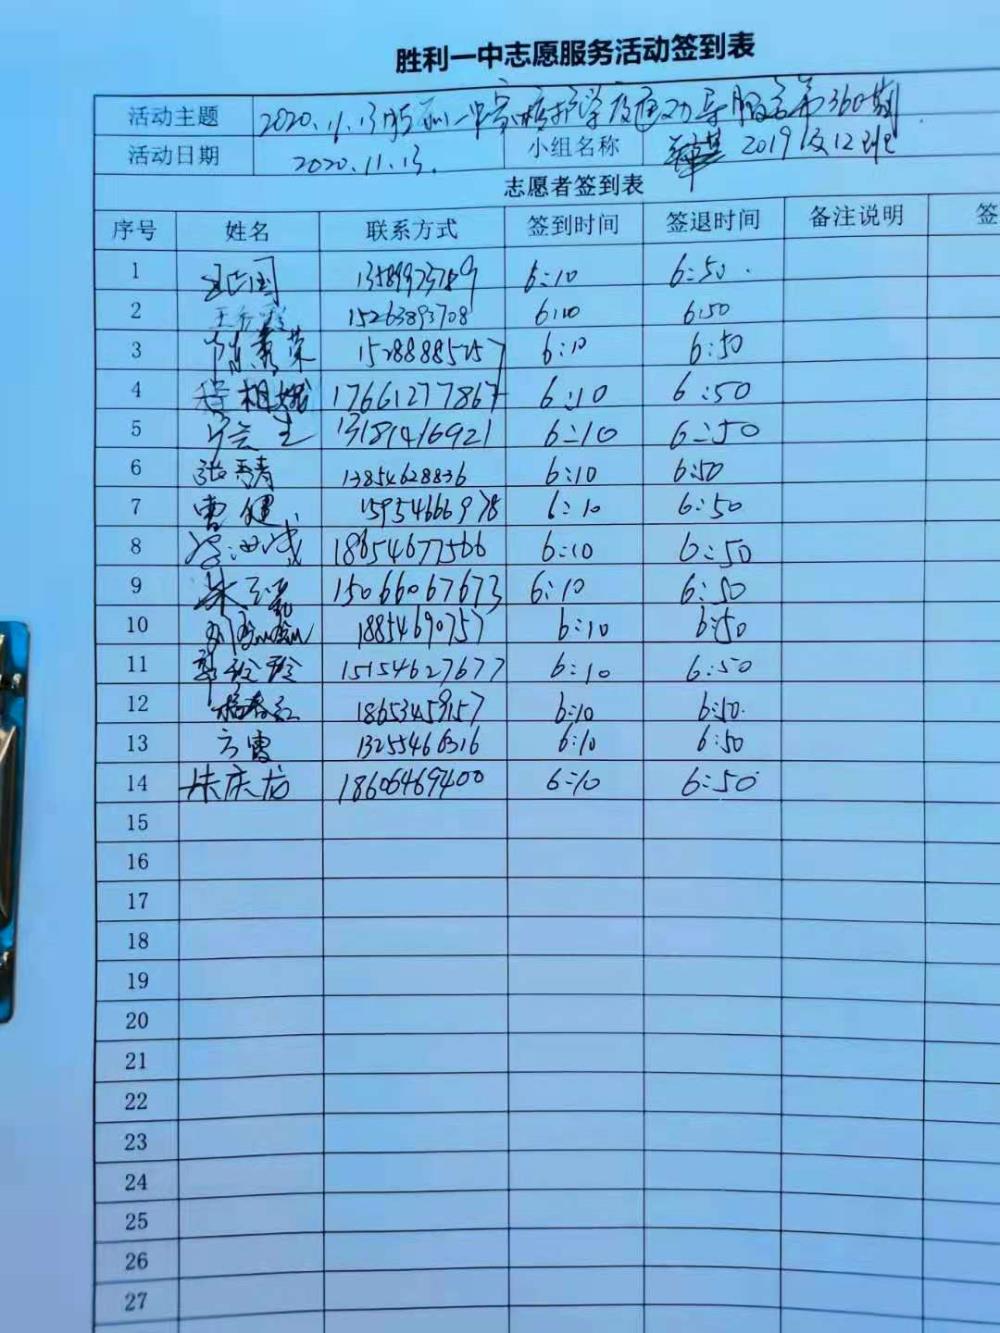 胜利一中志愿服务活动签到表
活动主题 2020.11.13胜利一中家校护学及交通劝导服务第360期
活动日期 2020.11.13. 小组名称 2019级12班
志愿者签到表
序号 姓名 联系方式 签到时间 签退时间 备注说明 签
1 13589973789 6:10 6:50.
2 15263893708 6:10 6:50
3 6:10 6:50
4 程相娥 17661277867 6:10 6:50
5 13181416921 6:10 6:50
6 13854628836 6:10 6:50
7 曹健 15954666978 6:10 6:50
8 18654677566 6:10 6:50
9 15066067673 6:10 6:50
10 18854690757 6:10 6:50
11 郭玲玲 15154627677 6:10 6:50
12 杨春红 6:10 6:50.
13 方霞 13255466316 6:10 6:50
14 朱庆龙 18606469400 6:10 6:50
15
16
17
18
19
20
21
22
23
24
25
26
27